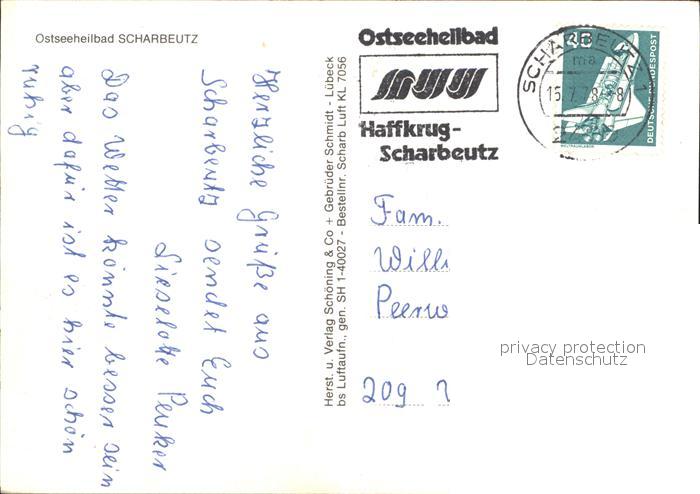 Ostseeheilbad SCHARBEUTZ
Herzliche Grüße aus
Scharbeutz sendet Euch
Lieselotte Peuker
Das Wetter könnte besser sein
aber dafür ist es hier schön
ruhig
Herst. u. Verlag Schöning & Co + Gebrüder Schmidt - Lübeck
bs Luftaufn., gen. SH 1-40027 - Bestellnr. Scharb Luft KL 7056
Ostseeheilbad
Haffkrug-
Scharbeutz
SCHARBEUTZ 1
ma
15.7.78-8
DEUTSCHE BUNDESPOST
WELTRAUMLABOR
Fam.
Willi
209
privacy protection
Datenschutz